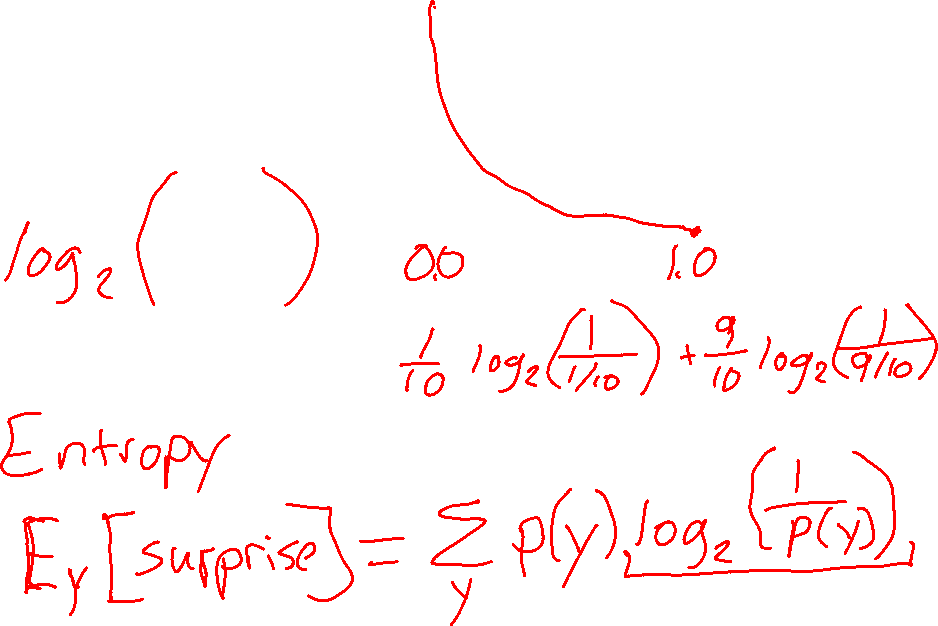 log₂( )
0.0 1.0
1/10 log₂(1/(1/10)) + 9/10 log₂(1/(9/10))
Entropy
E_Y[surprise] = ∑_y p(y) log₂(1/p(y))